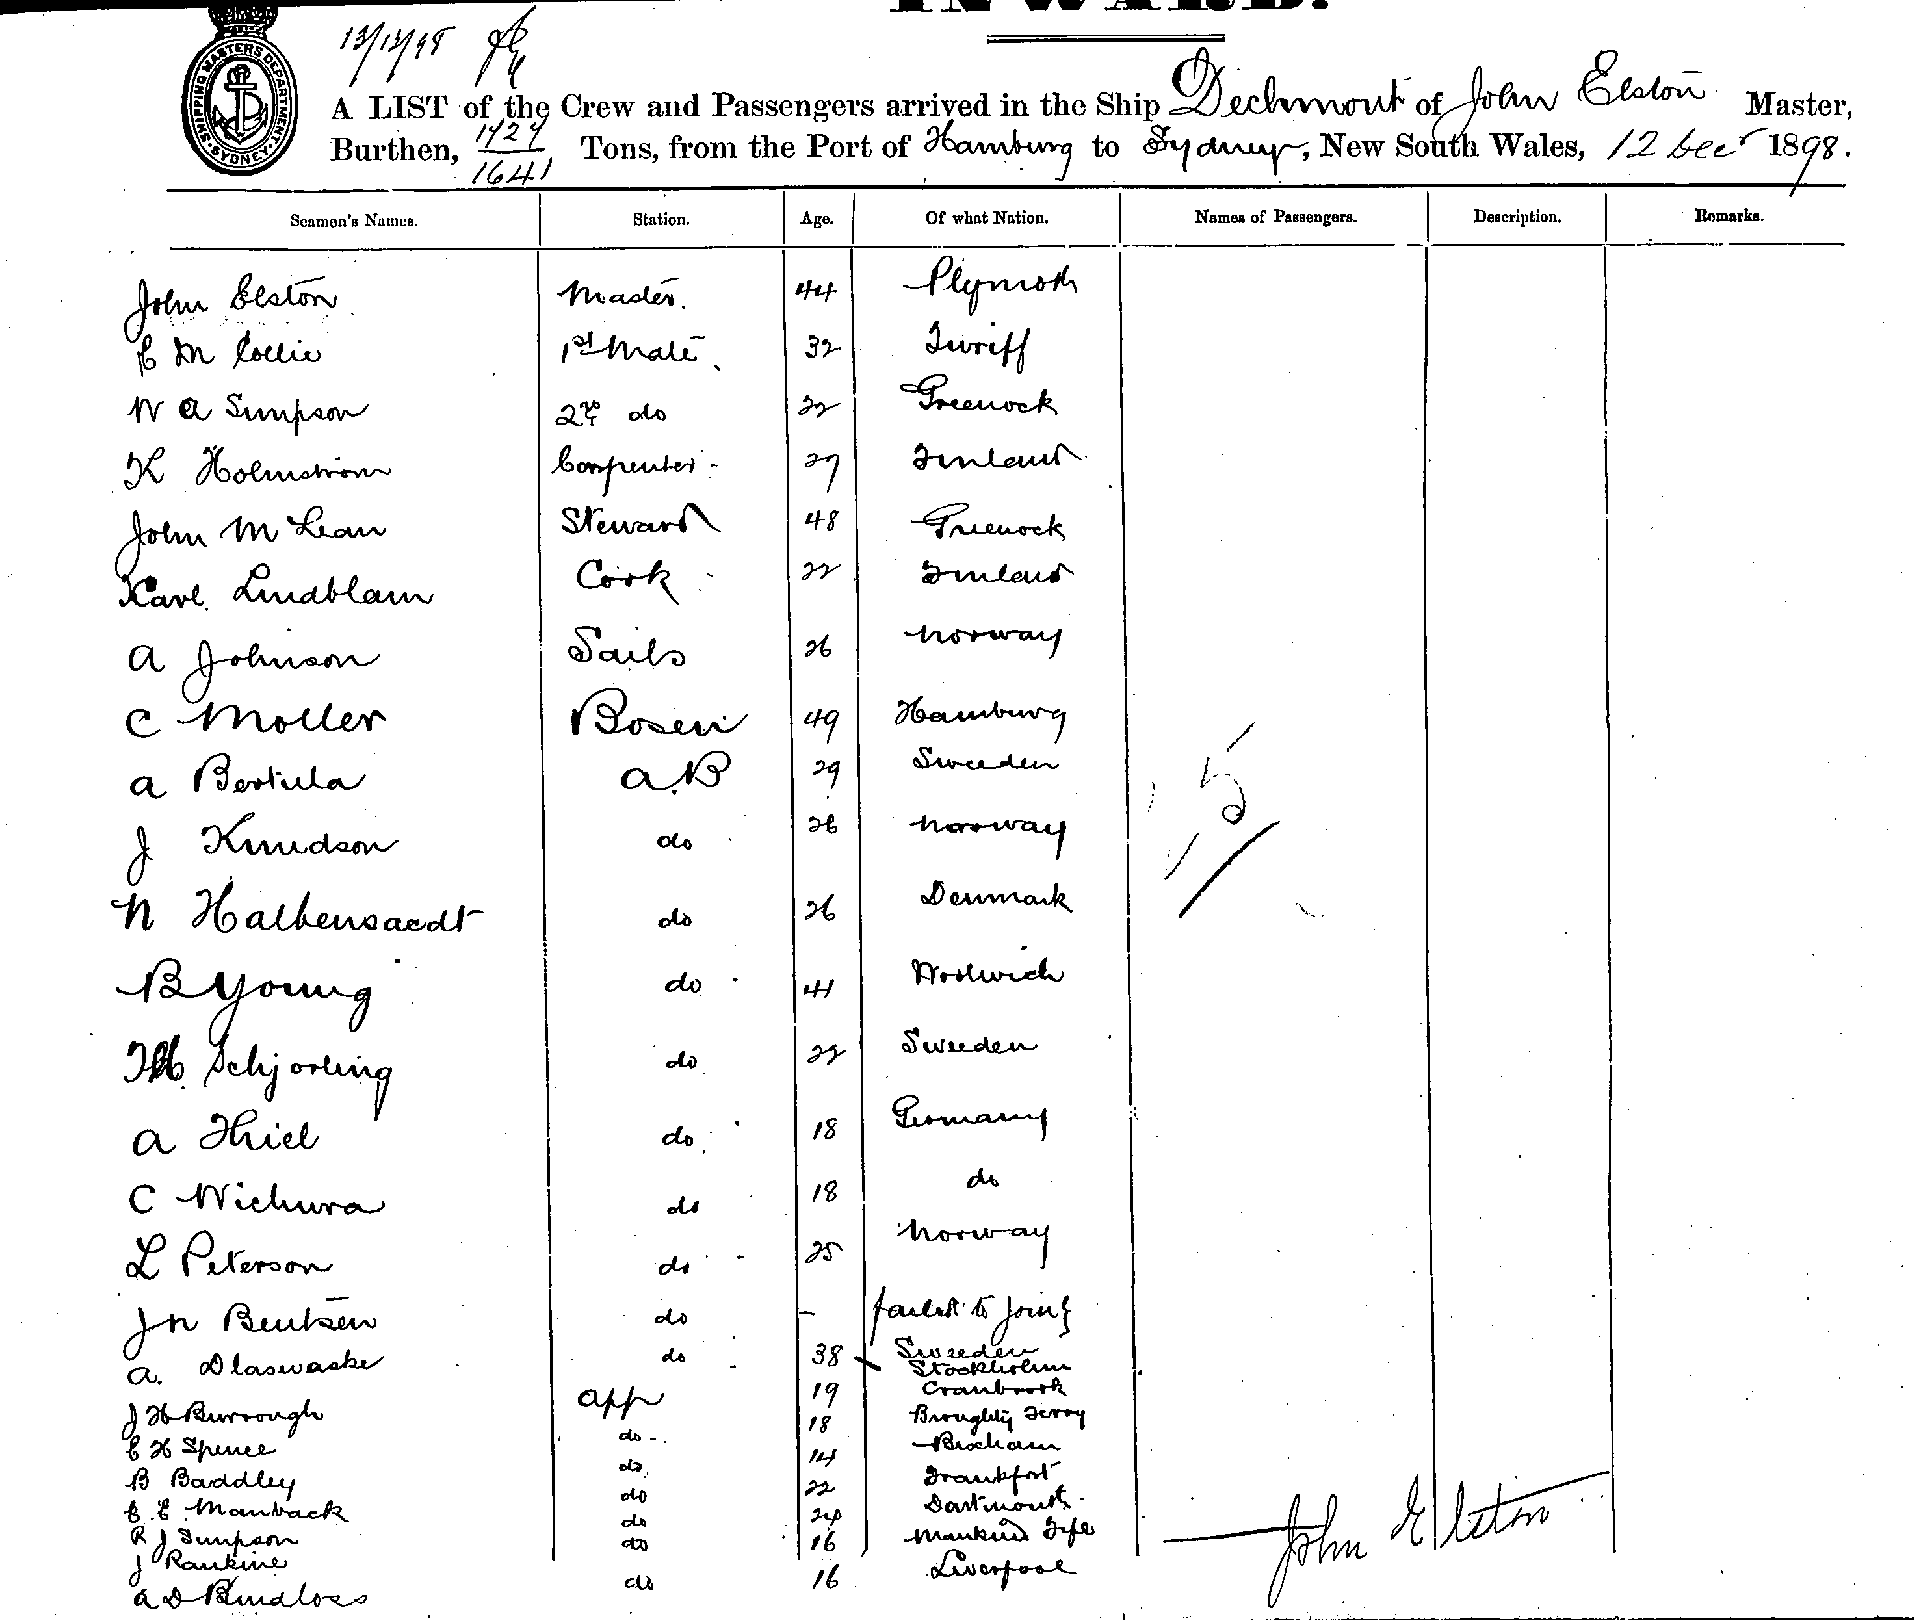 INWARD.
SHIPPING MASTERS DEPARTMENT
SYDNEY
13/12/98
A LIST of the Crew and Passengers arrived in the Ship Dechmont of John Elston Master,
Burthen, 1727/1641 Tons, from the Port of Hamburg to Sydney, New South Wales, 12 Decr 1898.
Seamen's Names. Station. Age. Of what Nation. Names of Passengers. Description. Remarks.
John Elston Master. 44 Plymoth
C M Collie 1st Mate 32 Turiff
W A Simpson 2nd do 22 Greenock
K Holmstrom Carpenter 27 Finland
John McLean Steward 48 Greenock
Karl Lindblam Cook 22 Finland
A Johnson Sails 26 Norway
C Moller Bosen 49 Hamburg
A Bertula A.B 29 Sweeden
J Knudson do 26 Norway
N Halbensaedt do 26 Denmark
B Young do 41 Woolwich
Schjorling do 22 Sweeden
A Thiel do 18 Germany
C Wichura do 18 do
L Peterson do 25 Norway
Jn Bentsen do - failed to join
A. Dlaswaske do 38 Sweeden
Stockholm
J H Burrough app 19 Cranbrook
E H Spence do 18 Broughty Ferry
B Baddley do 14 Brixham
C E Manback do 22 Frankfort
R J Simpson do 24 Dartmouth
J Rankine do 16 Fife
A D Bindloss do 16 Liverpool
25
John Elston